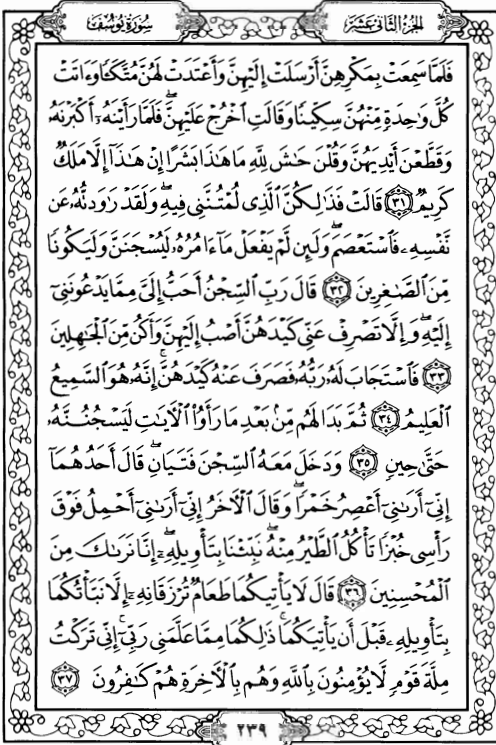 الجزء الثاني عشر
سورة يوسف
فَلَمَّا سَمِعَتْ بِمَكْرِهِنَّ أَرْسَلَتْ إِلَيْهِنَّ وَأَعْتَدَتْ لَهُنَّ مُتَّكَـًٔا وَءَاتَتْ
كُلَّ وَٰحِدَةٍ مِّنْهُنَّ سِكِّينًا وَقَالَتِ ٱخْرُجْ عَلَيْهِنَّ ۖ فَلَمَّا رَأَيْنَهُۥٓ أَكْبَرْنَهُۥ
وَقَطَّعْنَ أَيْدِيَهُنَّ وَقُلْنَ حَٰشَ لِلَّهِ مَا هَٰذَا بَشَرًا إِنْ هَٰذَآ إِلَّا مَلَكٌ
كَرِيمٌ ﴿٣١﴾ قَالَتْ فَذَٰلِكُنَّ ٱلَّذِى لُمْتُنَّنِى فِيهِ ۖ وَلَقَدْ رَٰوَدتُّهُۥ عَن
نَّفْسِهِۦ فَٱسْتَعْصَمَ ۖ وَلَئِن لَّمْ يَفْعَلْ مَآ ءَامُرُهُۥ لَيُسْجَنَنَّ وَلَيَكُونًا
مِّنَ ٱلصَّٰغِرِينَ ﴿٣٢﴾ قَالَ رَبِّ ٱلسِّجْنُ أَحَبُّ إِلَىَّ مِمَّا يَدْعُونَنِىٓ
إِلَيْهِ ۖ وَإِلَّا تَصْرِفْ عَنِّى كَيْدَهُنَّ أَصْبُ إِلَيْهِنَّ وَأَكُن مِّنَ ٱلْجَٰهِلِينَ
﴿٣٣﴾ فَٱسْتَجَابَ لَهُۥ رَبُّهُۥ فَصَرَفَ عَنْهُ كَيْدَهُنَّ ۚ إِنَّهُۥ هُوَ ٱلسَّمِيعُ
ٱلْعَلِيمُ ﴿٣٤﴾ ثُمَّ بَدَا لَهُم مِّنۢ بَعْدِ مَا رَأَوُا۟ ٱلْءَايَٰتِ لَيَسْجُنُنَّهُۥ
حَتَّىٰ حِينٍ ﴿٣٥﴾ وَدَخَلَ مَعَهُ ٱلسِّجْنَ فَتَيَانِ ۖ قَالَ أَحَدُهُمَآ
إِنِّىٓ أَرَىٰنِىٓ أَعْصِرُ خَمْرًا ۖ وَقَالَ ٱلْءَاخَرُ إِنِّىٓ أَرَىٰنِىٓ أَحْمِلُ فَوْقَ
رَأْسِى خُبْزًا تَأْكُلُ ٱلطَّيْرُ مِنْهُ ۖ نَبِّئْنَا بِتَأْوِيلِهِۦٓ ۖ إِنَّا نَرَىٰكَ مِنَ
ٱلْمُحْسِنِينَ ﴿٣٦﴾ قَالَ لَا يَأْتِيكُمَا طَعَامٌ تُرْزَقَانِهِۦٓ إِلَّا نَبَّأْتُكُمَا
بِتَأْوِيلِهِۦ قَبْلَ أَن يَأْتِيَكُمَا ۚ ذَٰلِكُمَا مِمَّا عَلَّمَنِى رَبِّىٓ ۚ إِنِّى تَرَكْتُ
مِلَّةَ قَوْمٍ لَّا يُؤْمِنُونَ بِٱللَّهِ وَهُم بِٱلْءَاخِرَةِ هُمْ كَٰفِرُونَ ﴿٣٧﴾
٢٣٩